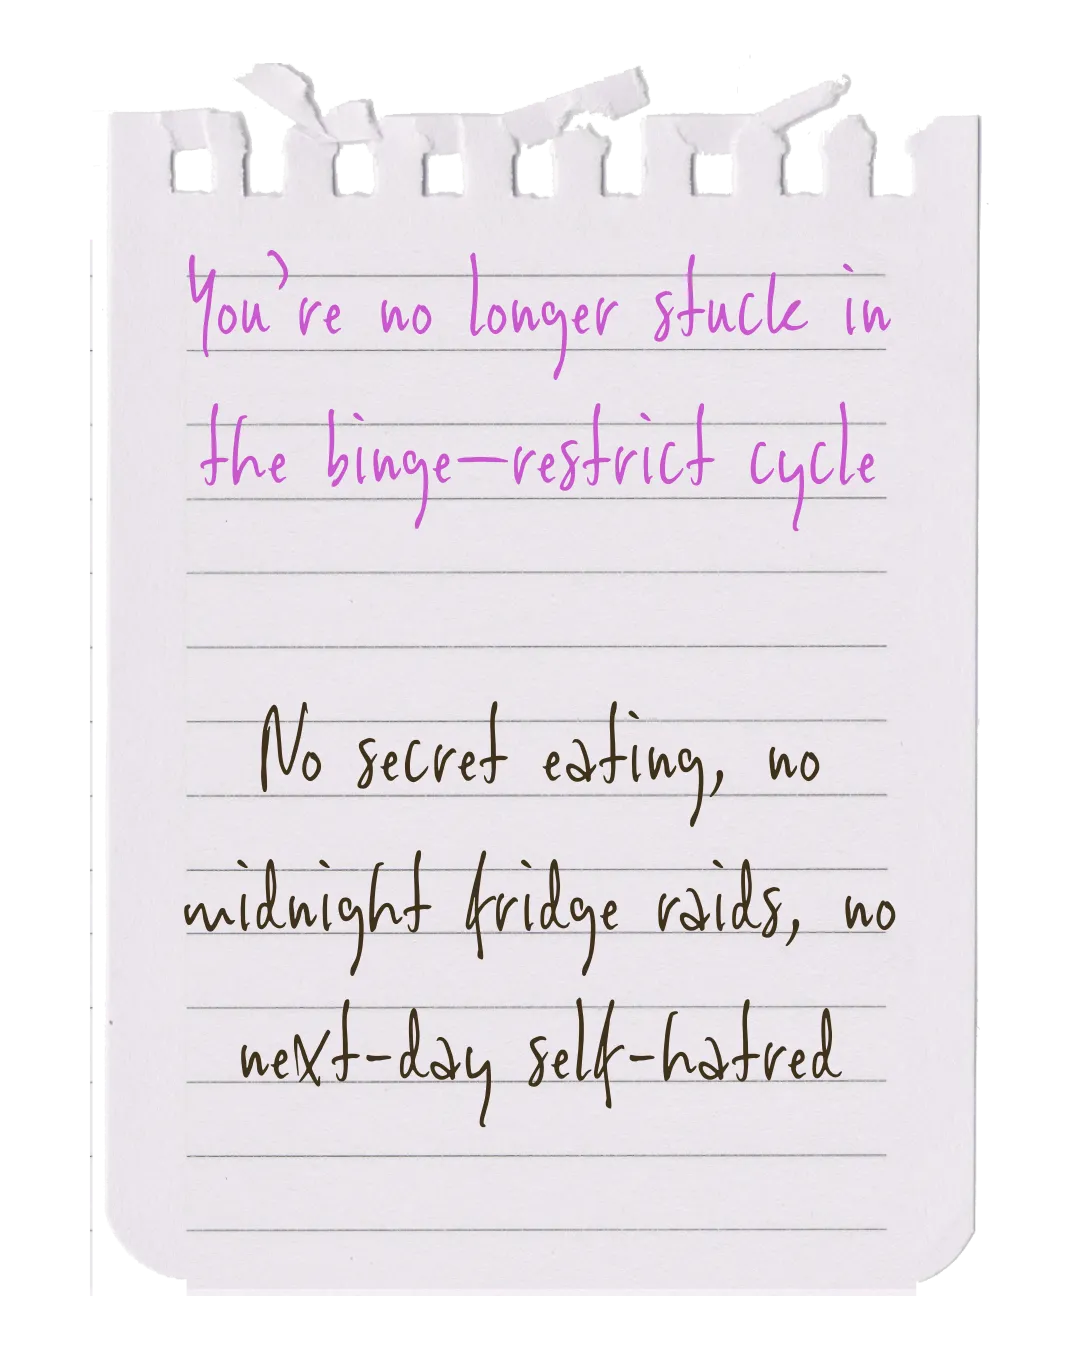 You're no longer stuck in
the binge-restrict cycle
No secret eating, no
midnight fridge raids, no
next-day self-hatred